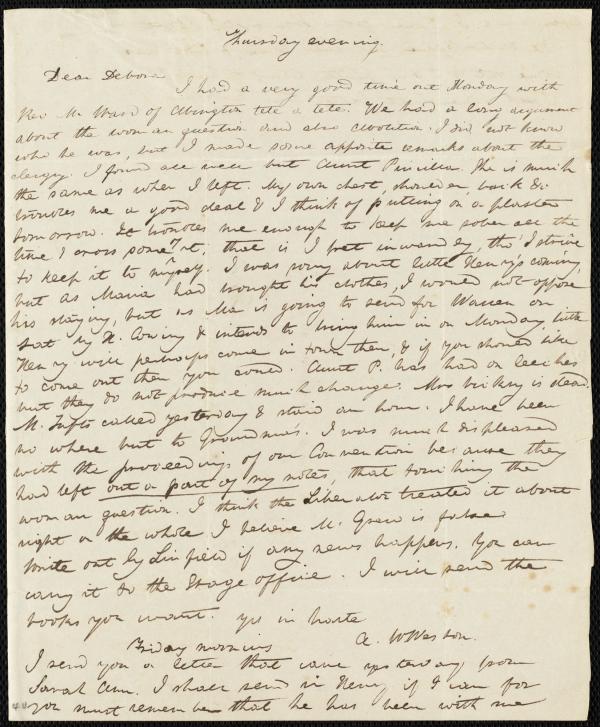 Thursday evening.
Dear Debora
I had a very good time out Monday with
Rev. Mr. Ward of Abington tete a tete. We had a long argument
about the woman question and also abolition. I did not know
who he was, but I made some apposite remarks about the
clergy. I found all well but Aunt Priscilla. She is much
the same as when I left. My own chest, shoulder, back &c
troubles me a good deal & I think of putting on a plaster
tomorrow. It troubles me enough to keep me sober all the
time & cross some of it, that is I fret inwardly, tho' I strive
to keep it to myself. I was sorry about little Henry's coming,
but as Maria had brought his clothes, I would not oppose
his staying, but as Ma is going to send for Warren on
Sat by H. Cowing & intends to bring him in on Monday, little
Henry will perhaps come in town then, & if you should like
to come out then you could. Aunt P. has had on leeches
but they do not produce much change. Mrs Vickery is dead.
M. Tufts called yesterday & staid an hour. I have been
no where but to Grandma's. I was much displeased
with the proceedings of our Convention because they
had left out a part of my notes, that touching the
woman question. I think the Liberator treated it about
right on the whole I believe Mr. Grew is false
Write out by Linfield if any news happens. You can
carry it to the Stage office. I will send the
books you want. yrs in haste
A. W Weston.
Friday morning
I send you a letter that came yesterday from
Sarah Ann. I shall send in Henry if I can for
you must remember that he has been with me